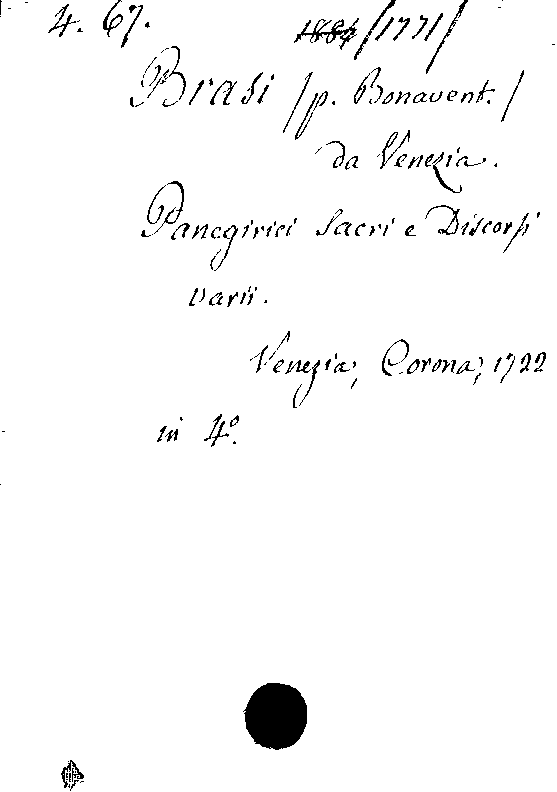 4. 67. 1884 /1771/
Brasi /p. Bonavent./
da Venezia.
Panegirici Sacri e Discorsi
varii.
Venezia, Corona, 1722
in 4º.